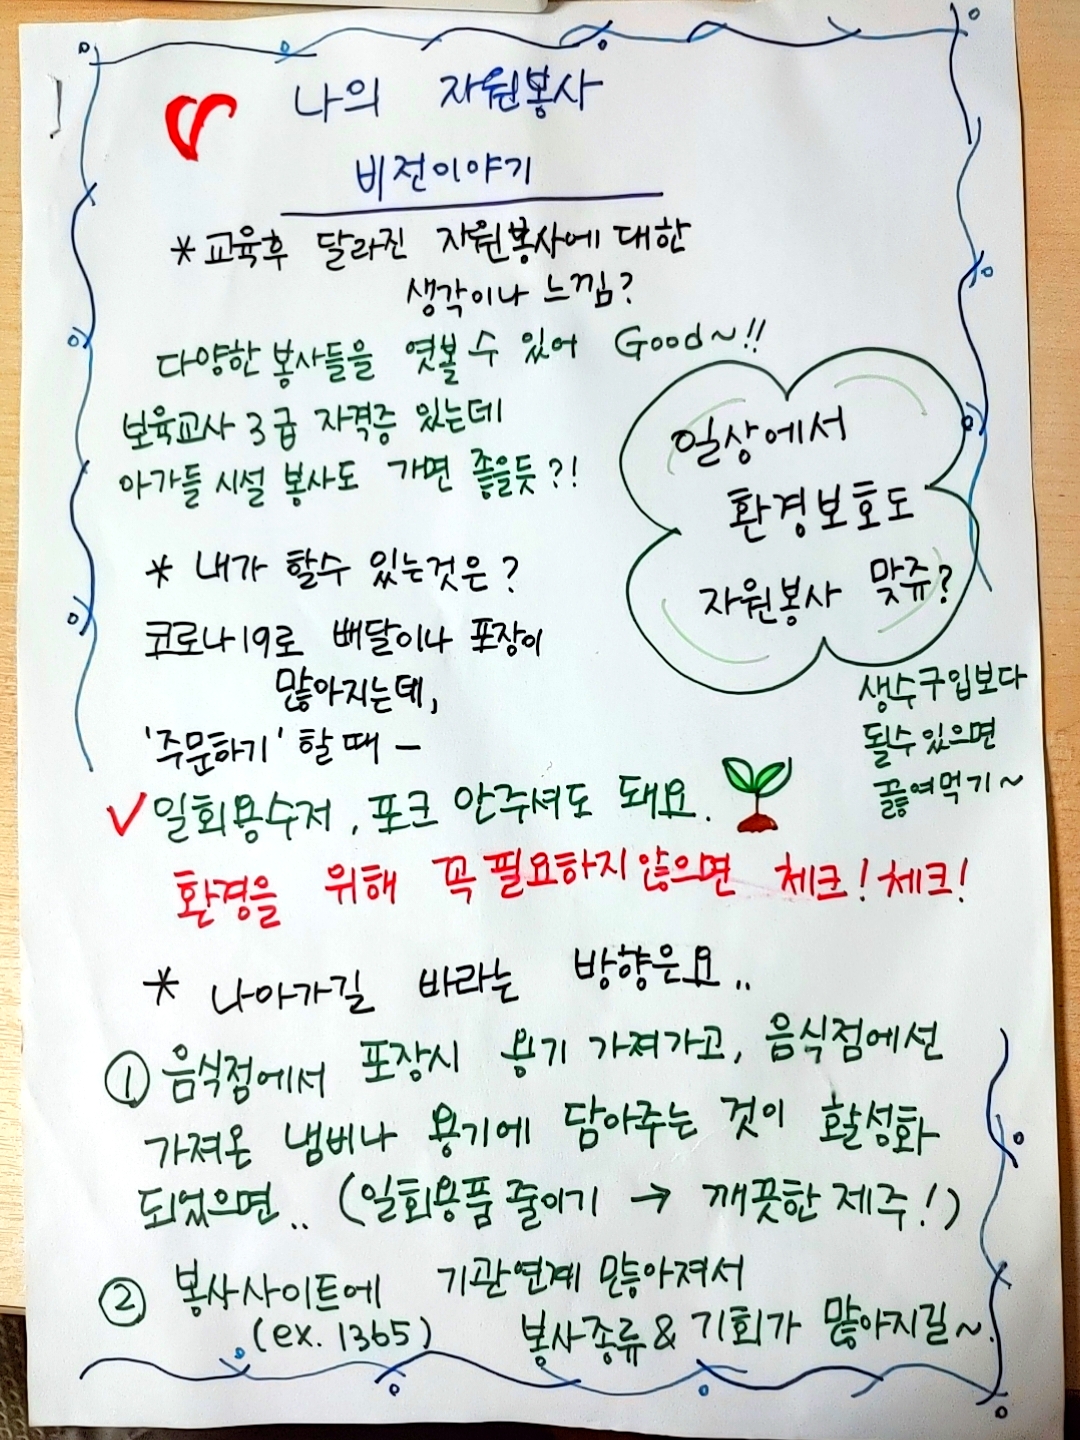 나의 자원봉사
비전이야기
* 교육후 달라진 자원봉사에 대한
생각이나 느낌?
다양한 봉사들을 엿볼 수 있어 Good~!!
보육교사 3급 자격증 있는데
아가들 시설 봉사도 가면 좋을듯?!
일상에서
환경보호도
자원봉사 맞쥬?
* 내가 할수 있는것은?
코로나19로 배달이나 포장이
많아지는데,
'주문하기' 할 때 –
생수구입보다
될수있으면
끓여먹기~
✓ 일회용수저, 포크 안주셔도 돼요.
환경을 위해 꼭 필요하지 않으면 체크! 체크!
* 나아가길 바라는 방향은요..
① 음식점에서 포장시 용기 가져가고, 음식점에선
가져온 냄비나 용기에 담아주는 것이 활성화
되었으면.. (일회용품 줄이기 → 깨끗한 제주!)
② 봉사사이트에 기관연계 많아져서
(ex. 1365) 봉사종류 & 기회가 많아지길~